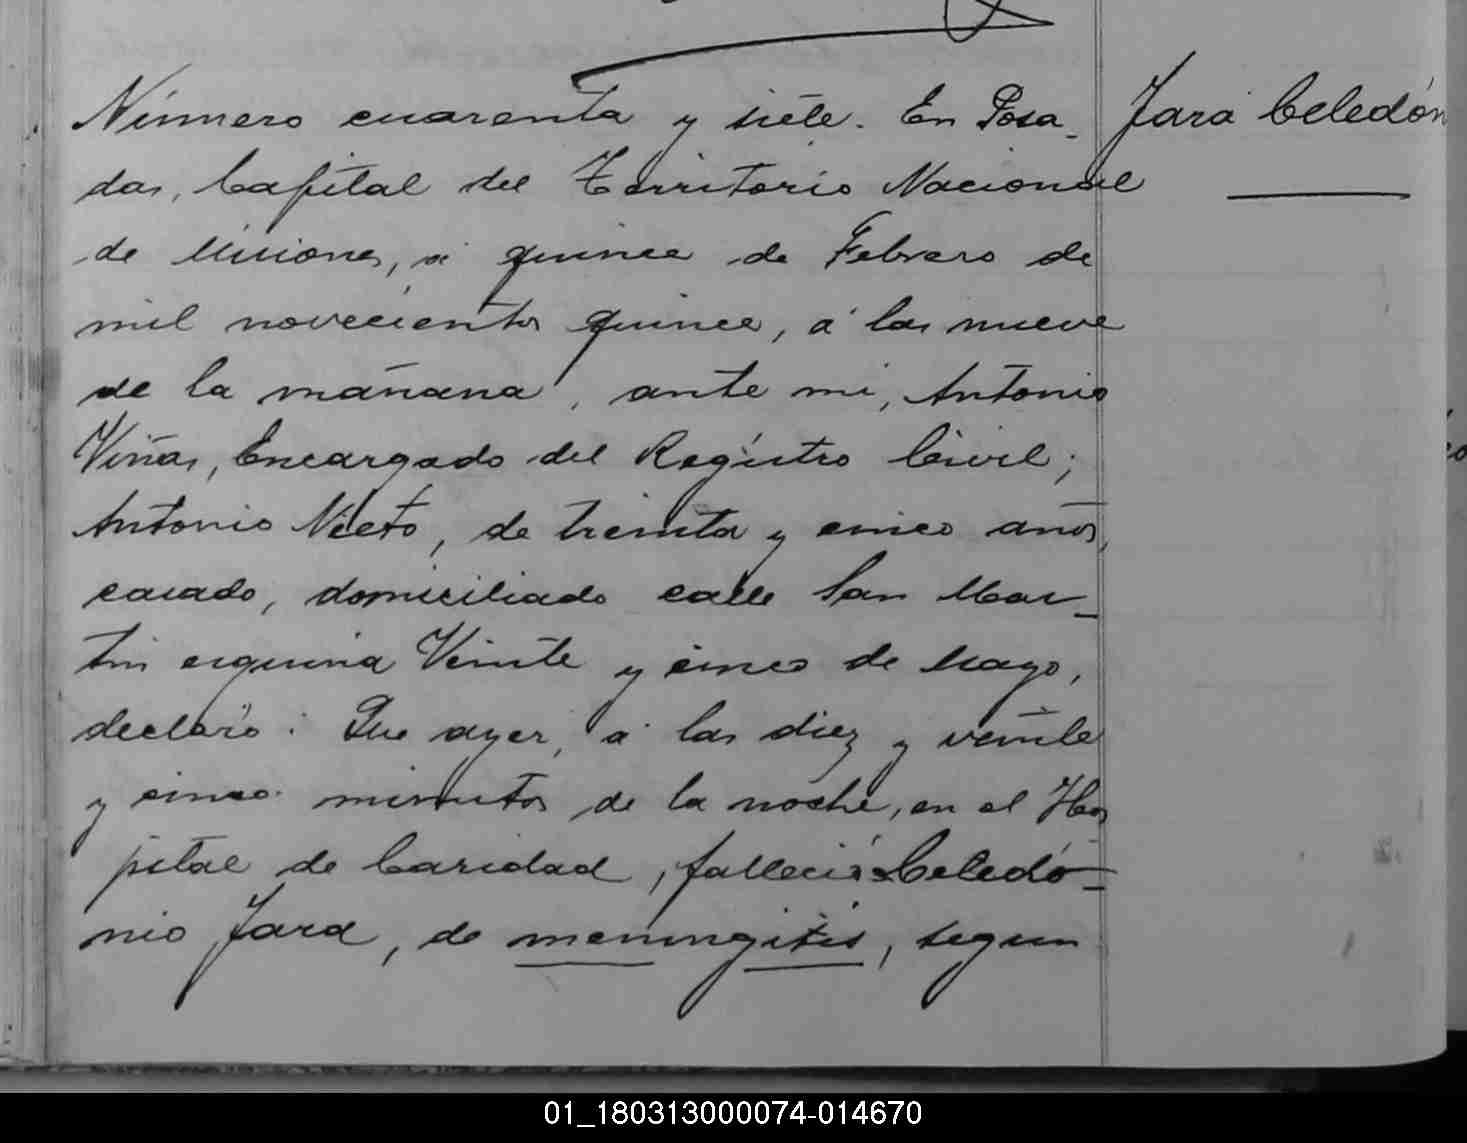 Número cuarenta y siete. En Posa-
das, Capital del Territorio Nacional
de Misiones, á quince de Febrero de
mil novecientos quince, á las nueve
de la mañana, ante mi, Antonio
Viñas, Encargado del Registro Civil;
Antonio Nieto, de treinta y cinco años,
casado, domiciliado calle San Mar-
tin esquina Veinte y cinco de Mayo,
declaró: Que ayer, á las diez y veinte
y cinco minutos de la noche, en el Hos
pital de Caridad, falleció Celedó-
nio Jara, de meningitis, segun
Jara Celedón
01_180313000074-014670